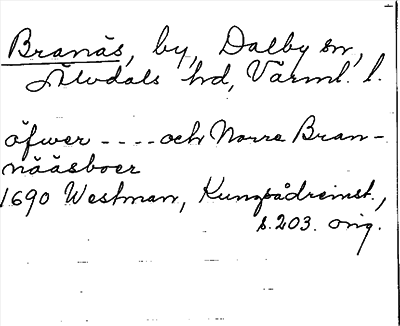 Branäs, by, Dalby sn,
Älvdals hd, Värml. l.
öfwer - - - - och Norre Bran-
nääsboer
1690 Westman, Kungsådreinst.,
s. 203. orig.